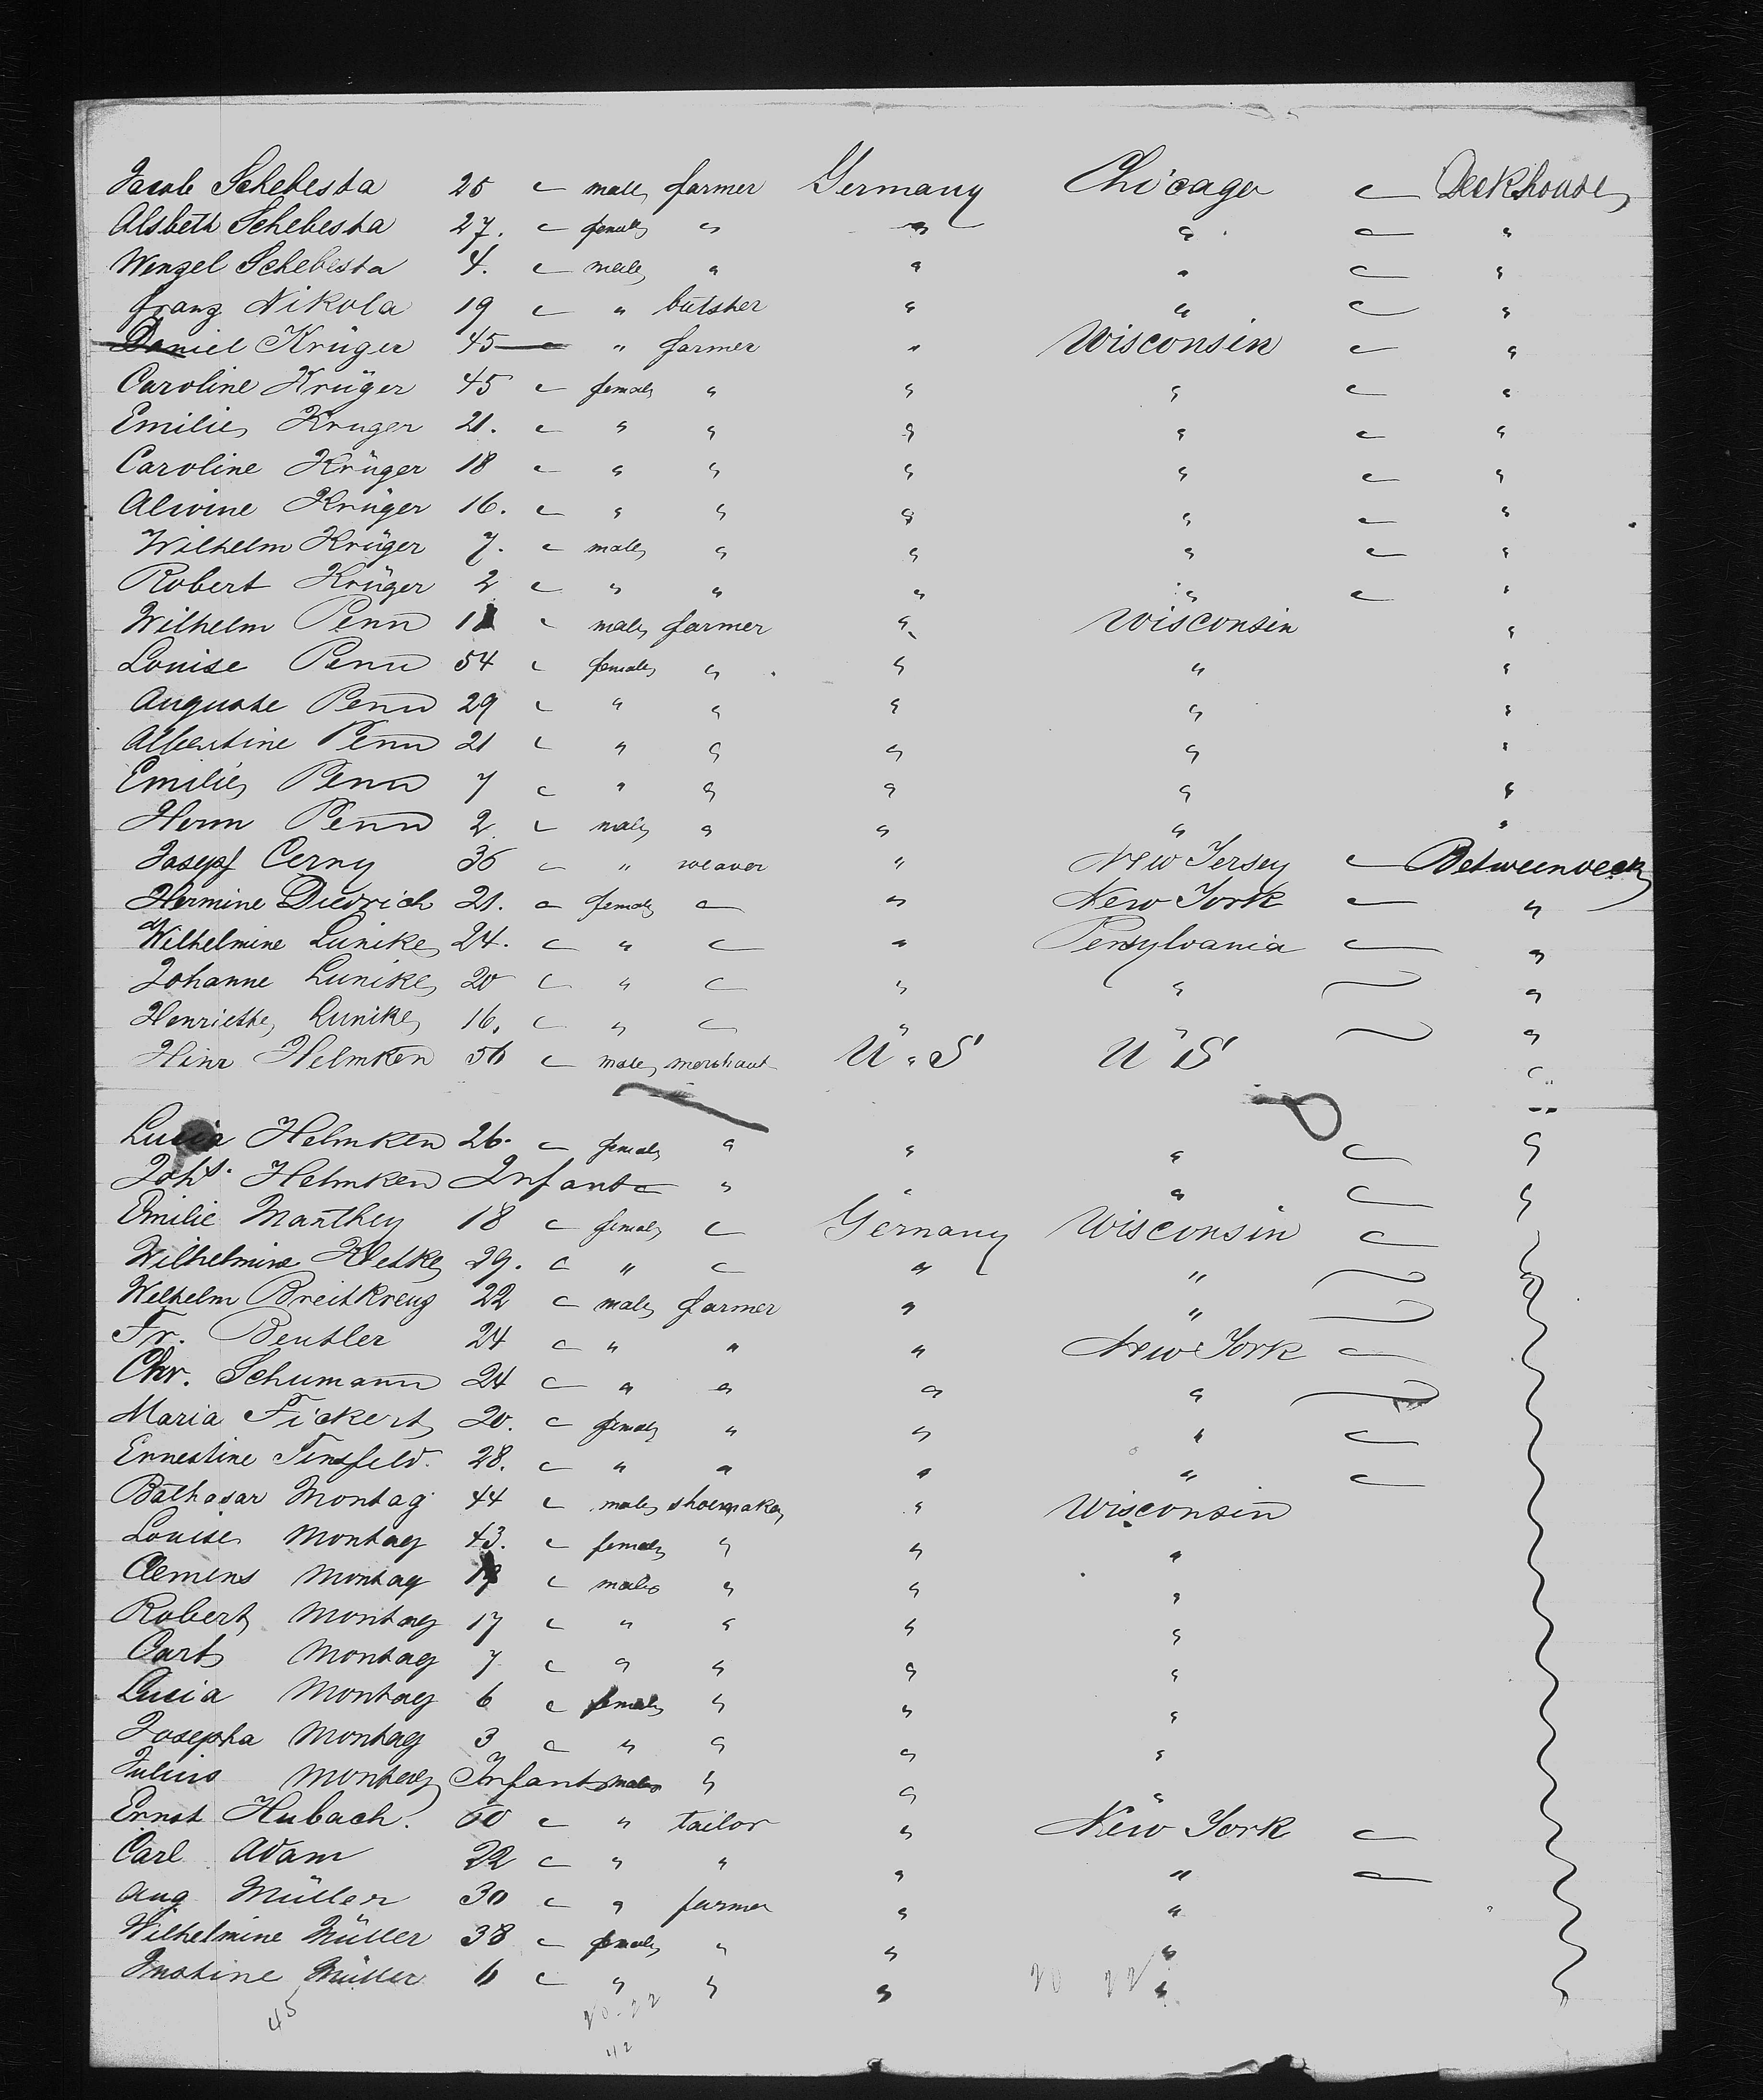 Jacob Schebesta 25 male farmer Germany Chicago Deckhouse
Alsbeth Schebesta 27. female " " " "
Wenzel Schebesta 4. male " " " "
Franz Nikola 19 " butsher " " "
Daniel Krüger 45 " farmer " Wisconsin "
Caroline Krüger 45 female " " " "
Emilie Kruger 21. " " " " "
Caroline Krüger 18 " " " " "
Alwine Krüger 16. " " " " "
Wilhelm Krüger 7. male " " " "
Robert Krüger 2 " " " " "
Wilhelm Penn male farmer " Wisconsin "
Louise Penn 54 female " " " "
Auguste Penn 29 " " " " "
Albertine Penn 21 " " " " "
Emilie Penn 7 " " " " "
Herm Penn 2 male " " " "
Josepf Cerny 36 " weaver " New Jersey Betweendeck
Hermine Diedrich 21. female " New York "
Wilhelmine Lunike 24. " " Pensylvania "
Johanne Lunike 20 " " " "
Henriette Lunike 16. " " " "
Hinr Helmken 56 male merchant U.S U S
Lucia Helmken 26. female " " " "
Joht. Helmken Infant " " " "
Emilie Manthey 18 female Germany Wisconsin
Wilhelmine Kletke 29. " " "
Wilhelm Breitkreuz 22 male farmer " "
Fr. Beutler 24 " " " New York
Chr. Schumann 24 " " " "
Maria Fickert 20. female " " "
Ernestine Tinsfeld. 28. " " " "
Balthasar Montag 44 male shoemaker " Wisconsin
Louise Montag 43. female " " "
Clemens Montag male " " "
Robert Montag 17 " " " "
Carl Montag 7 " " " "
Lucia Montag 6 female " " "
Josepha Montag 3 " " " "
Julius Montag Infant male " " "
Ernst Hubach. " tailor " New York
Carl Adam 22 " " " "
Aug Müller 30 " farmer " "
Wilhelmine Müller 38 female " " "
Müller 6 " " " "
45 20-22 20 22
42